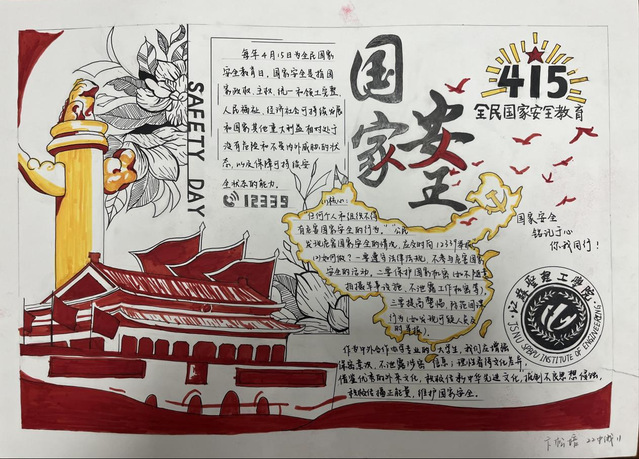 SAFETY DAY
每年4月15日为全民国家
安全教育日,国家安全是指国
家政权、主权、统一和领土完整、
人民福祉、经济社会可持续发展
和国家其他重大利益相对处于
没有危险和不受内外威胁的状
态,以及保障可持续安
全状态的能力。
12339
国家
安全
415
全民国家安全教育
任何个人和组织不得
有危害国家安全的行为。”公民
发现危害国家安全的情况,应及时向12339举报
以如何做?一要遵守法律法规,不参与危害国家
安全的活动,二要保护国家秘密
三要提高警惕,防范间谍
行为(如发现可疑人员及
时举报)。
国家安全
铭记于心
你我同行!
江苏理工学院
INSTITUTE OF ENGINEERING
作为中外合作办学专业的大学生,我们应增强
保密意识,不泄露涉密信息;理性看待文化差异,
借鉴优秀的外来文化,积极传播中华先进文化,抵制不良思想侵蚀,
积极传播正能量,维护国家安全。